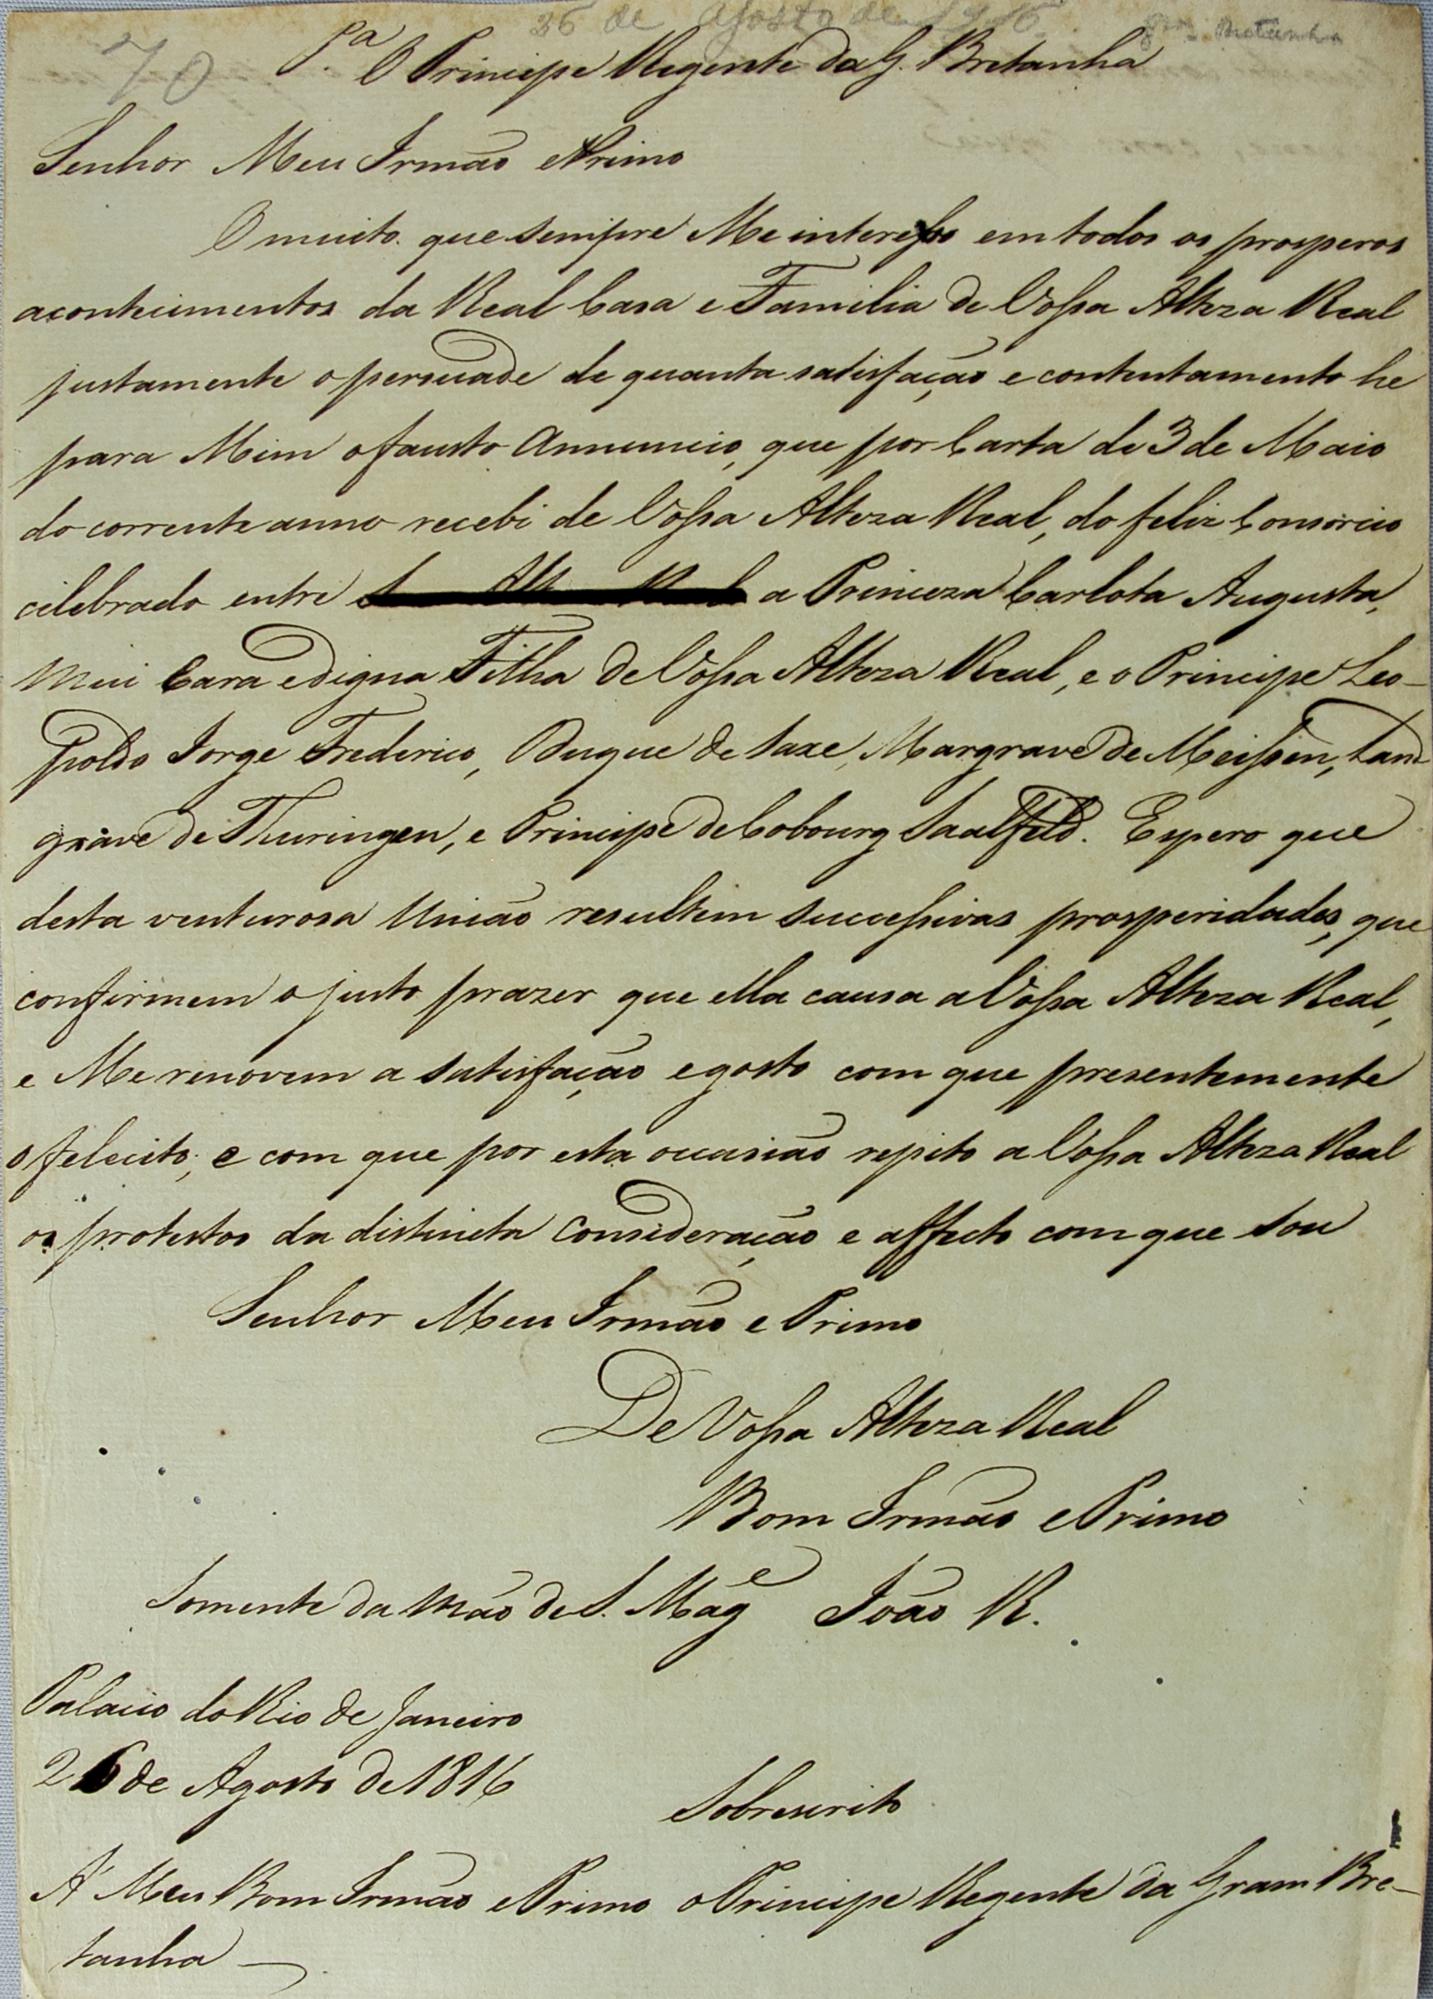 26 de Agosto de 1816
Gram Bretanha
70
P.a O Principe Regente da G. Bretanha
Senhor Meu Irmão e Primo
O muito que sempre Me interesso em todos os prosperos
acontecimentos da Real Casa e Familia de Vossa Alteza Real
justamente o persuade de quanta satisfação e contentamento he
para Mim o fausto Annuncio, que por Carta de 3 de Maio
do corrente anno recebi de Vossa Alteza Real, do feliz Consorcio
celebrado entre a Princeza Carlota Augusta,
mui Cara e digna Filha de Vossa Alteza Real, e o Principe Leo-
poldo Jorge Frederico, Duque de Saxe, Margrave de Meissen, Land-
grave de Thuringen, e Principe de Cobourg Saalfeld. Espero que
desta venturosa União resultem successivas prosperidades, que
confirmem o justo prazer que ella causa a Vossa Alteza Real,
e Me renovem a satisfação e gosto com que presentemente
o felecito; e com que por esta occasião repito a Vossa Alteza Real
os protestos da distincta Consideração e affecto com que sou
Senhor Meu Irmão e Primo
De Vossa Alteza Real
Bom Irmão e Primo
Somente da mão de S. Mag.e João R.
Palacio do Rio de Janeiro
26 de Agosto de 1816
Sobrescrito
A' Meu Bom Irmão e Primo o Principe Regente da Gram Bre-
tanha